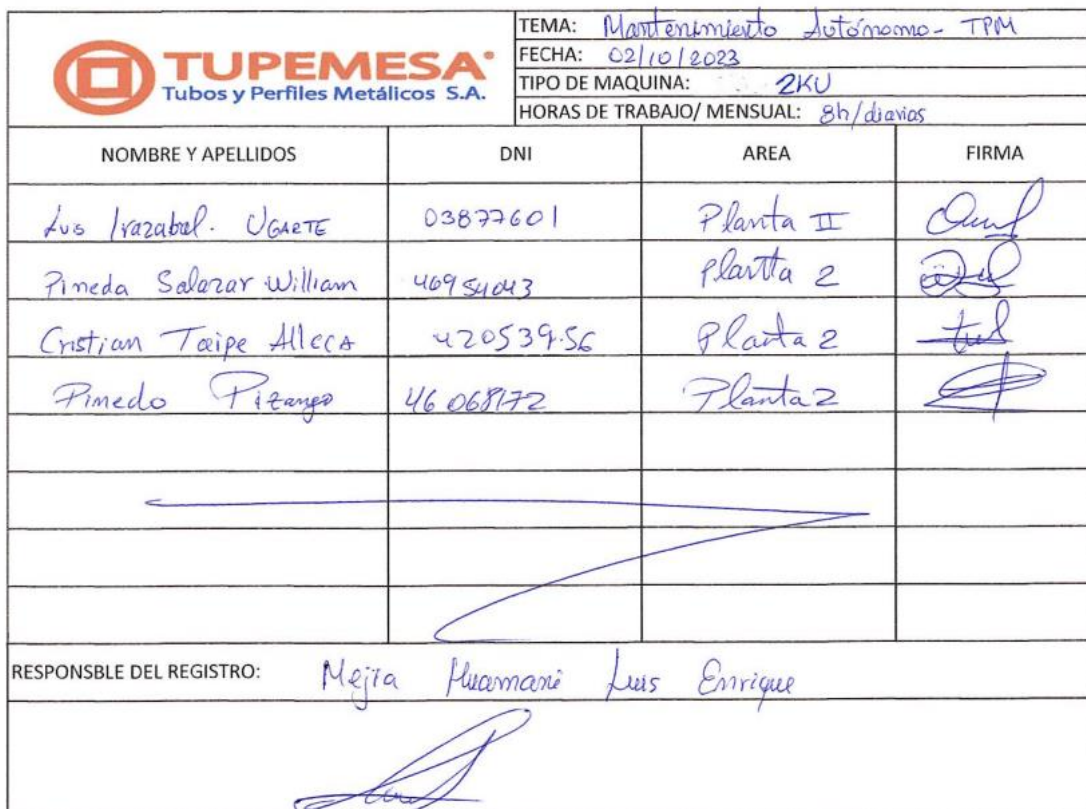 TUPEMESA
Tubos y Perfiles Metálicos S.A.
TEMA: Mantenimiento Autónomo - TPM
FECHA: 02/10/2023
TIPO DE MAQUINA: 2KU
HORAS DE TRABAJO/ MENSUAL: 8h/diarios
NOMBRE Y APELLIDOS DNI AREA FIRMA
Luis Irazabal. UGARTE 03877601 Planta II
Pineda Salazar William 46954043 Plantta 2
Cristian Taipe Allcca 42053956 Planta 2
Pinedo Pizango 46068172 Planta 2
RESPONSBLE DEL REGISTRO: Mejia Huamani Luis Enrique